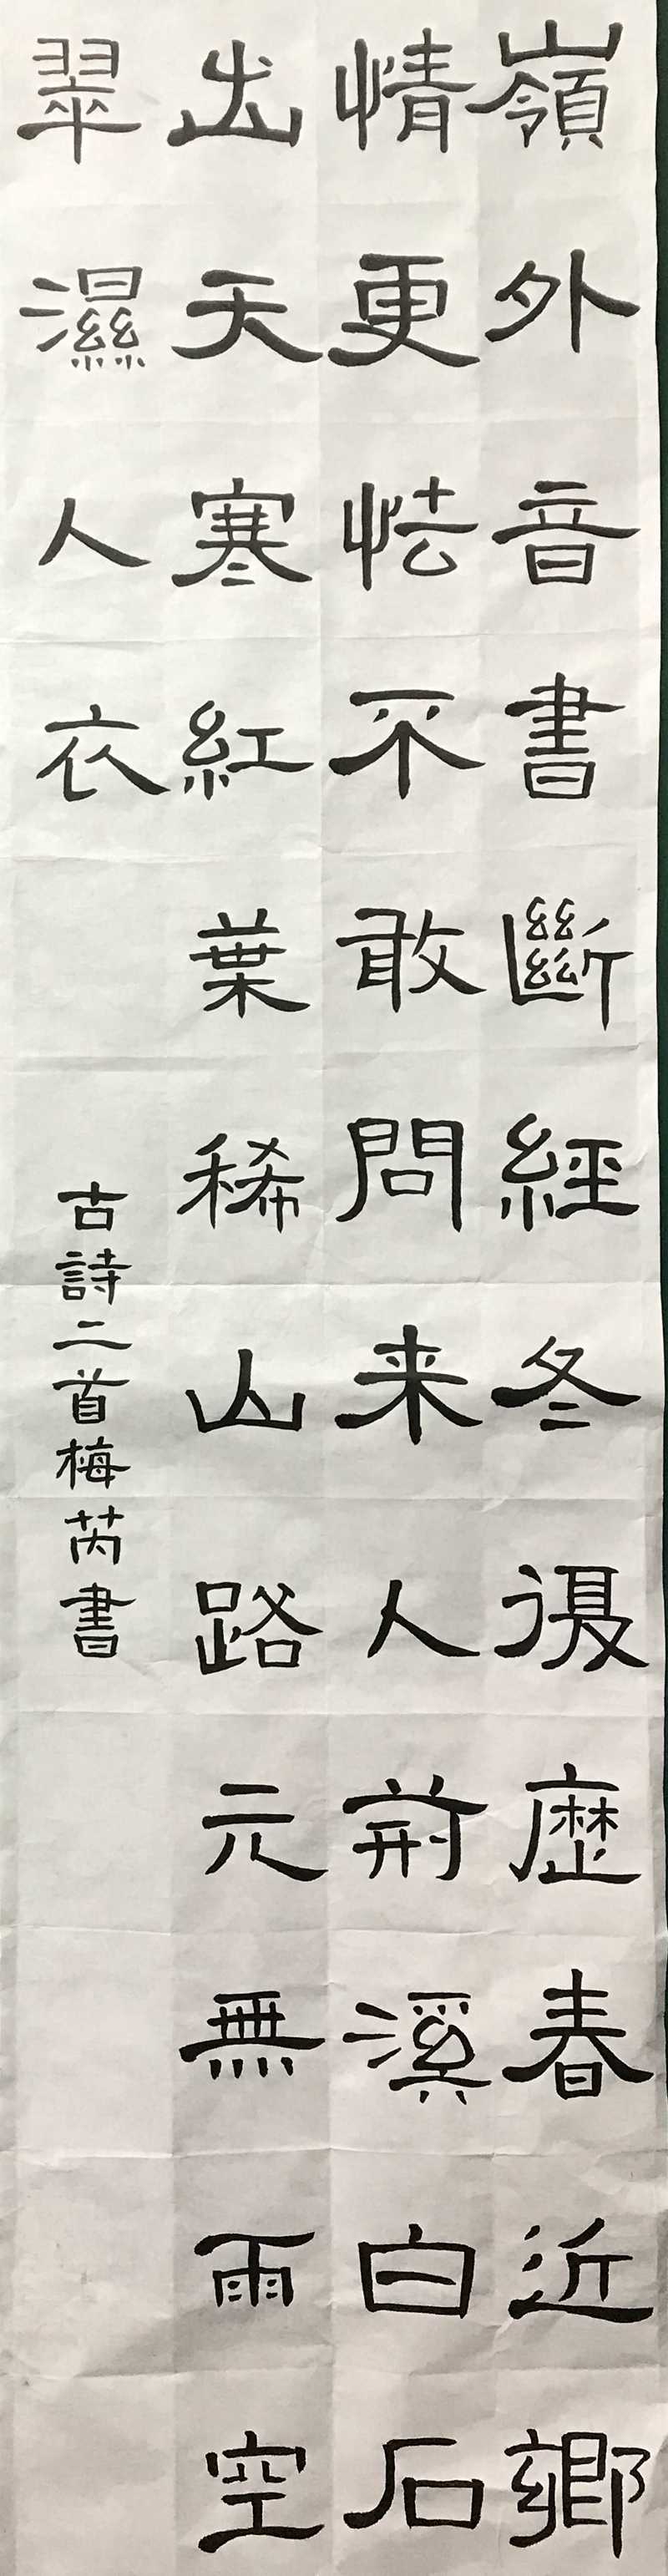 嶺外音書斷經冬復歷春近鄉
情更怯不敢問来人荊溪白石
出天寒紅葉稀山路元無雨空
翠濕人衣
古詩二首梅芮書